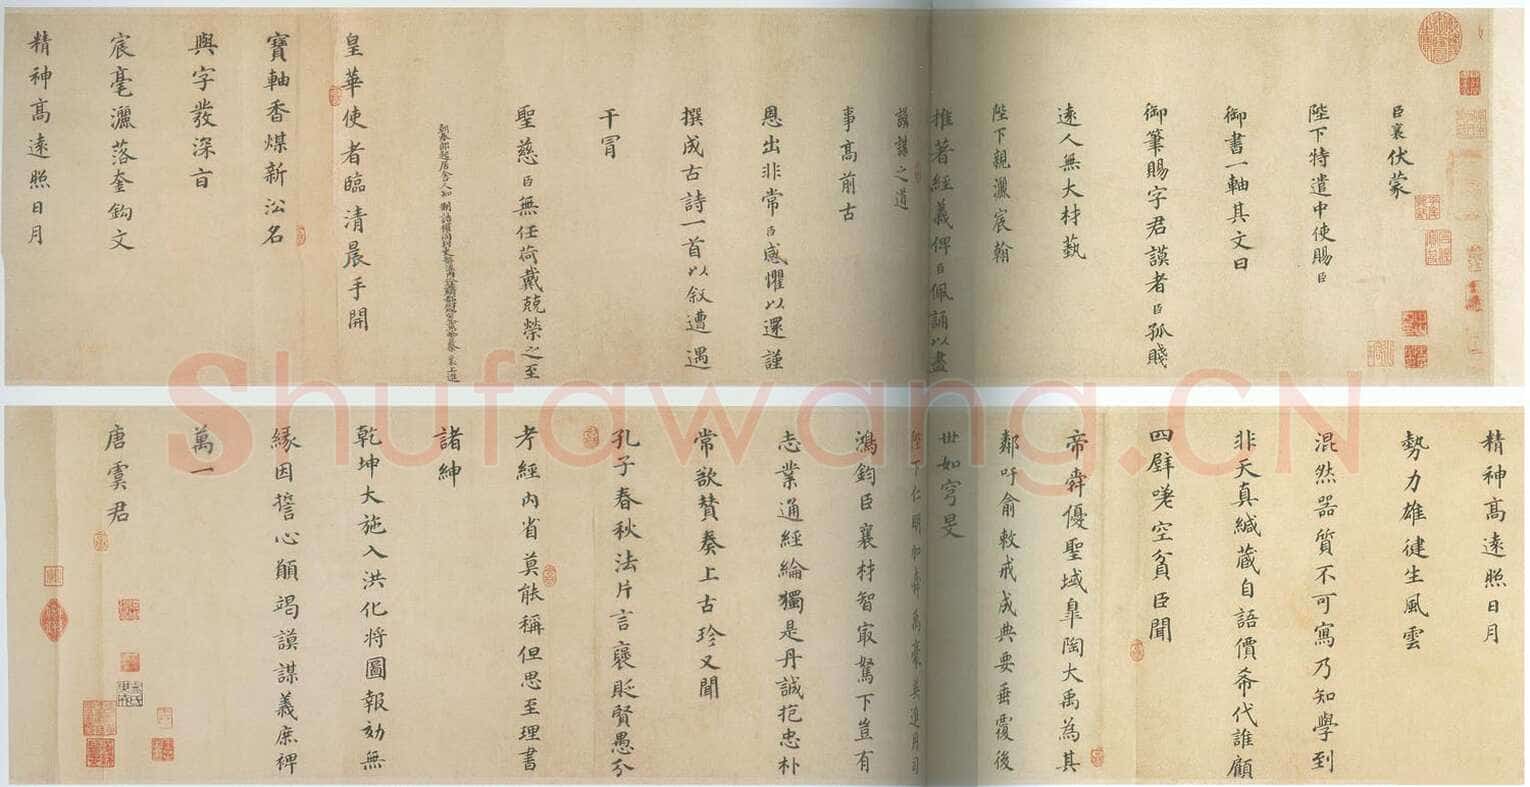 臣襄伏蒙
陛下特遣中使賜臣
御書一軸其文曰
御筆賜字君謨者臣孤賤
遠人無大材藝
陛下親灑宸翰
推著經義俾臣佩誦以盡
謨謀之道
事高前古
恩出非常臣感懼以還謹
撰成古詩一首以叙遭遇
干冒
聖慈臣無任荷戴兢榮之至
朝奉郎起居舍人知制誥權同判吏部流內銓
皇華使者臨清晨手開
寶軸香煤新沿名
與字發深旨
宸毫灑落奎鉤文
精神高遠照日月
精神高遠照日月
勢力雄健生風雲
混然器質不可寫乃知學到
非天真緘藏自語價希代誰顧
四壁嗟空貧臣聞
帝舜優聖域臯陶大禹為其
鄰吁俞敕戒成典要垂覆後
世如穹旻
陛下仁明如舜禹豪英進用司
鴻鈞臣襄材智最駑下豈有
志業通經綸獨是丹誠抱忠朴
常欲贊奏上古珍又聞
孔子春秋法片言褒貶賢愚分
考經內省莫能稱但思至理書
諸紳
乾坤大施入洪化將圖報効無
緣因誓心願竭謨謀義庶裨
萬一
唐虞君
Shufawang.CN